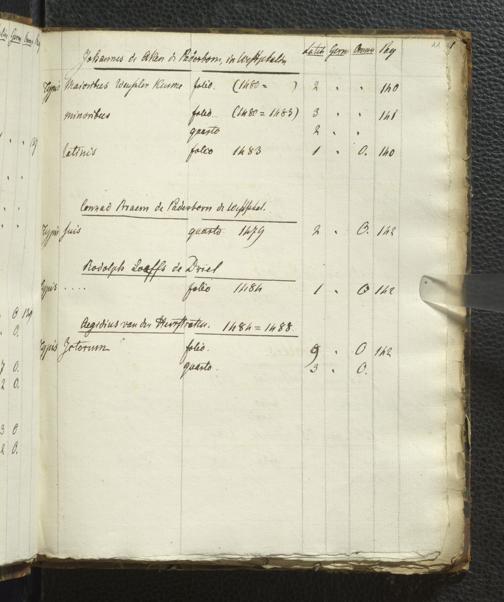 Johannes de Aken de Paderborn, in Westphalen Latin Germ Omnes Pag
Typis Maioribus folio (1480 = ) 2 " " 140
minoribus folio (1480 = 1483) 3 " " 141
quarto 2 " "
latinis folio 1483 1 " O. 140
Conrad Braem de Paderborn de Westphal.
Typis suis quarto 1479 2 " O. 142
Rodolph Loeffs de Driel
Typis .... folio 1484 1 " O 142
Aegidius van der Heerstraten. 1484 = 1488
Typis folio. 9 " O 142
quarto. 3 " O.